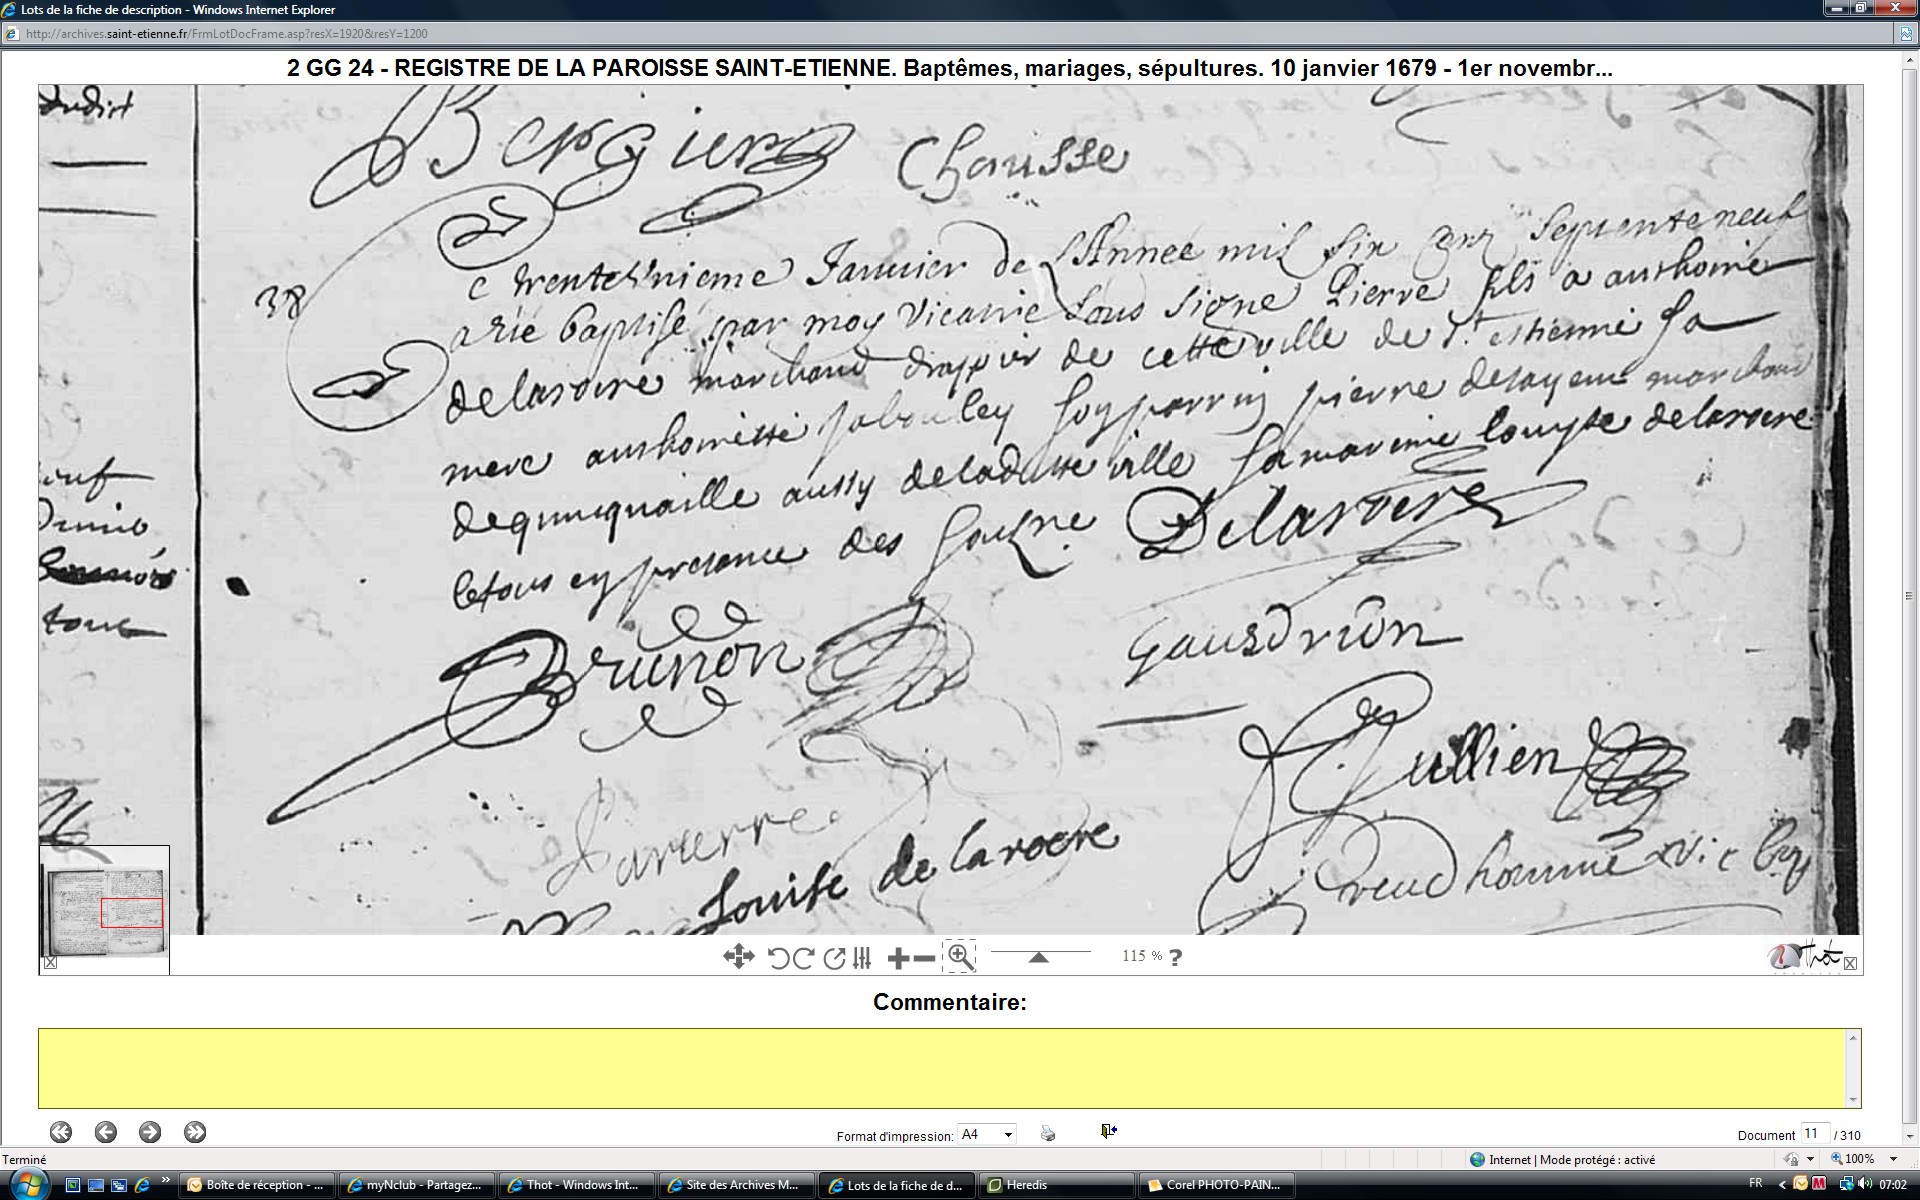 Lots de la fiche de description - Windows Internet Explorer
http://archives.saint-etienne.fr/FrmLotDocFrame.asp?resX=1920&resY=1200
2 GG 24 - REGISTRE DE LA PAROISSE SAINT-ETIENNE. Baptêmes, mariages, sépultures. 10 janvier 1679 - 1er novembr...
dudict
Bergier Chouisse
38
Ce trenteunieme Januier de l'Année mil six cent septente neuf
a esté baptisé par moy vicaire sous signe Pierre fils a anthoine
delaroire marchand drappier de cette ville de St. estienne sa
mere anthoinette jabouley son parrin pierre delayeux marchand
de quinquaille aussy de laditte ville sa marenne louyse delaroere
le tous en presence des
Delaroere
Brunon
Gausdrion
Jullien
Louise de laroere
Preudhomme vic
115 % ?
Thot
Commentaire:
Format d'impression: A4
Document 11 / 310
Terminé
Internet | Mode protégé : activé
100%
Boîte de réception - ...
myNclub - Partagez...
Thot - Windows Int...
Site des Archives M...
Lots de la fiche de d...
Heredis
Corel PHOTO-PAIN...
FR
07:02